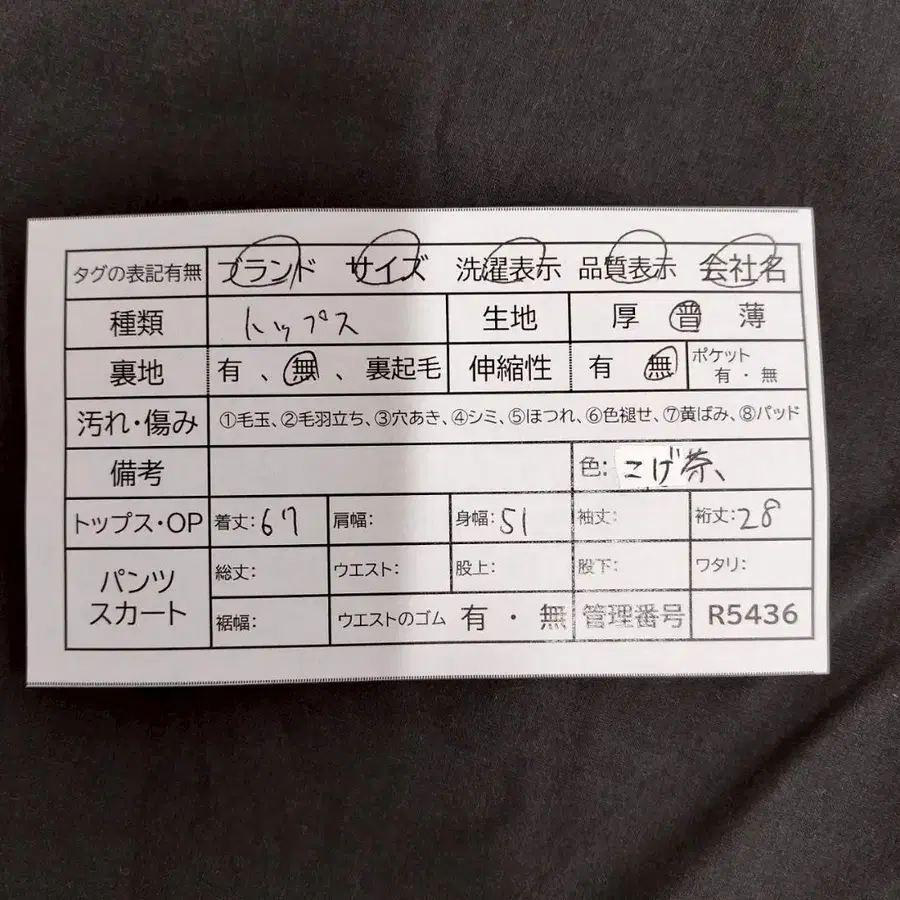 タグの表記有無 ブランド サイズ 洗濯表示 品質表示 会社名
種類 トップス 生地 厚 普 薄
裏地 有 、無 、裏起毛 伸縮性 有 無 ポケット 有・無
汚れ・傷み ①毛玉、②毛羽立ち、③穴あき、④シミ、⑤ほつれ、⑥色褪せ、⑦黄ばみ、⑧パッド
備考 色: こげ茶、
トップス・OP 着丈:67 肩幅: 身幅:51 袖丈: 裄丈:28
パンツ スカート 総丈: ウエスト: 股上: 股下: ワタリ:
裾幅: ウエストのゴム 有・無 管理番号 R5436